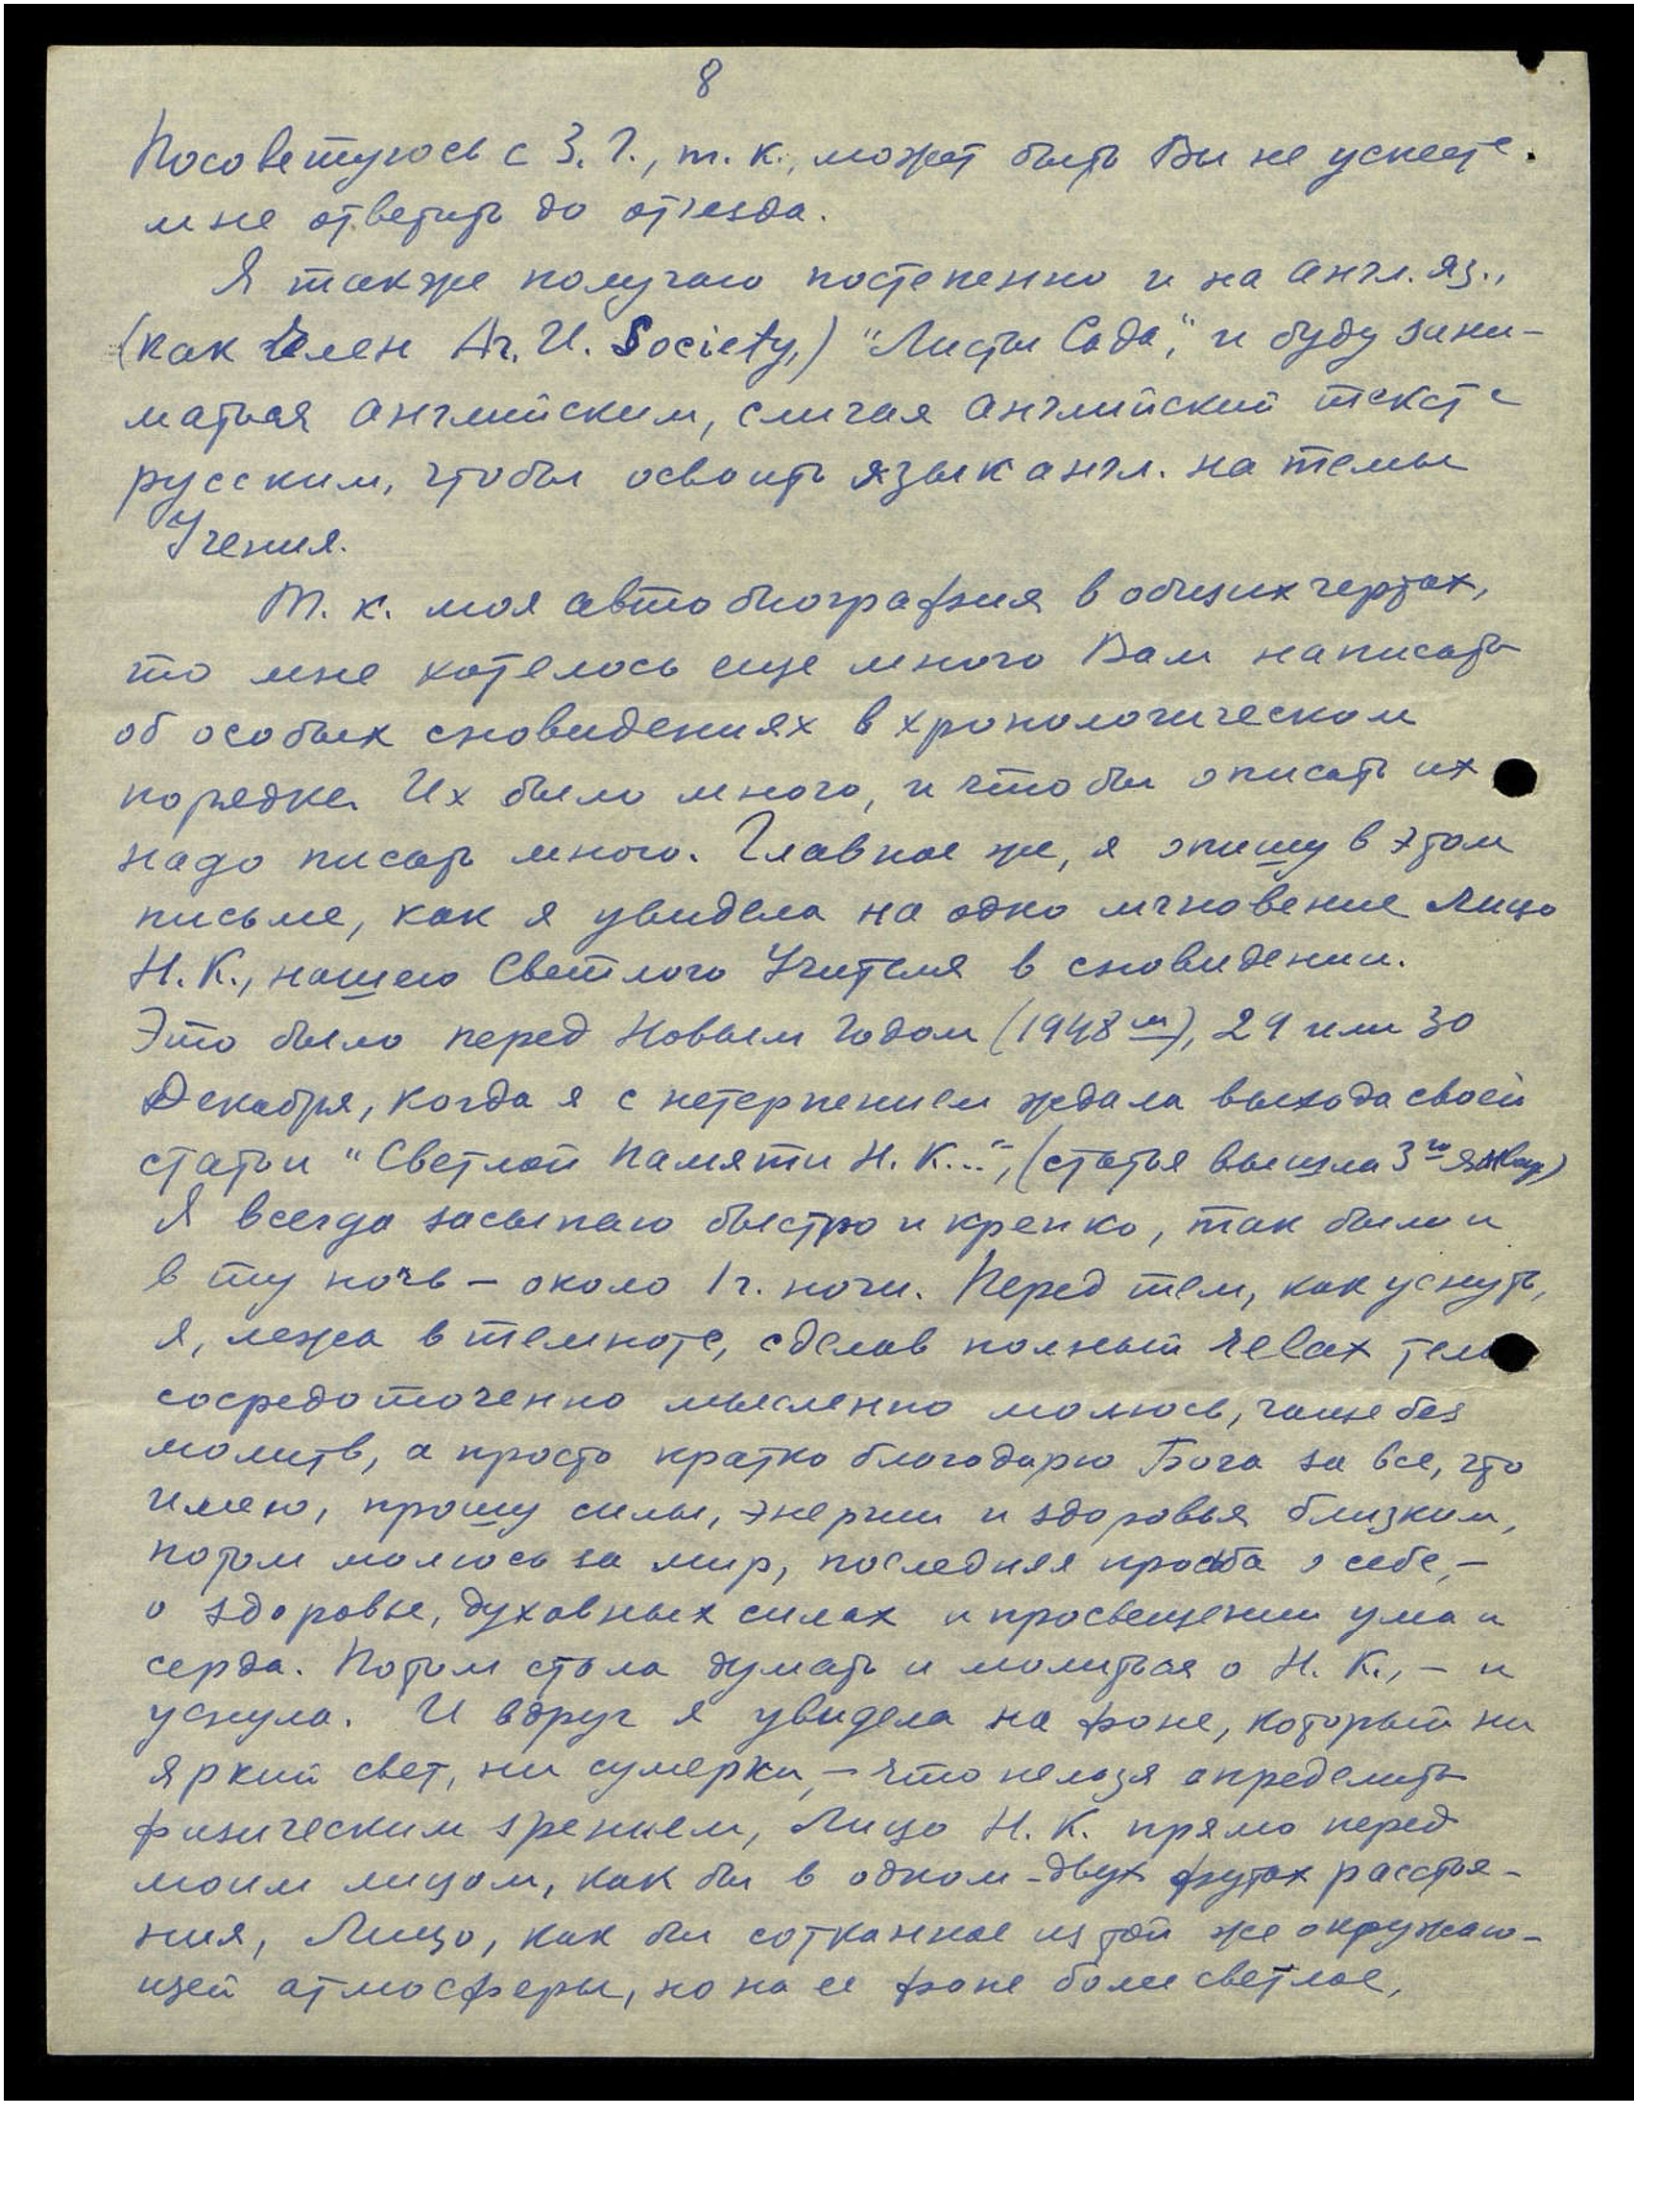 8
Посоветуюсь с З. Г., т. к., может быть Вы не успеете
мне ответить до отъезда.
Я также получаю постепенно и на англ. яз.,
(как член Ar. U. Society,) "Листы Сада", и буду зани-
маться английским, сличая английский текст с
русским, чтобы освоить язык англ. на темы
Учения.
Т. к. моя автобиография в общих чертах,
то мне хотелось еще много Вам написать
об особых сновидениях в хронологическом
порядке. Их было много, и чтобы описать их
надо писать много. Главное же, я опишу в этом
письме, как я увидела на одно мгновение Лицо
Н. К., нашего Светлого Учителя в сновидении.
Это было перед Новым Годом (1948 м), 29 или 30
Декабря, когда я с нетерпением ждала выхода своей
статьи "Светлой Памяти Н. К...", (статья вышла 3го январ)
Я всегда засыпаю быстро и крепко, так было и
в ту ночь – около 1 ч. ночи. Перед тем, как уснуть,
я, лежа в темноте, сделав полный relax тела
сосредоточенно мысленно молюсь, чаще без
молитв, а просто кратко благодарю Бога за все, что
имею, прошу силы, энергии и здоровья близким,
потом молюсь за мир, последняя просьба о себе, –
о здоровье, духовных силах и просвещении ума и
серда. Потом стала думать и молиться о Н. К., – и
уснула. И вдруг я увидела на фоне, который ни
яркий свет, ни сумерки, – что нельзя определить
физическим зрением, Лицо Н. К. прямо перед
моим лицом, как бы в одном-двух футах расстоя-
ния, Лицо, как бы сотканное из той же окружаю-
щей атмосферы, но на ее фоне более светлое,